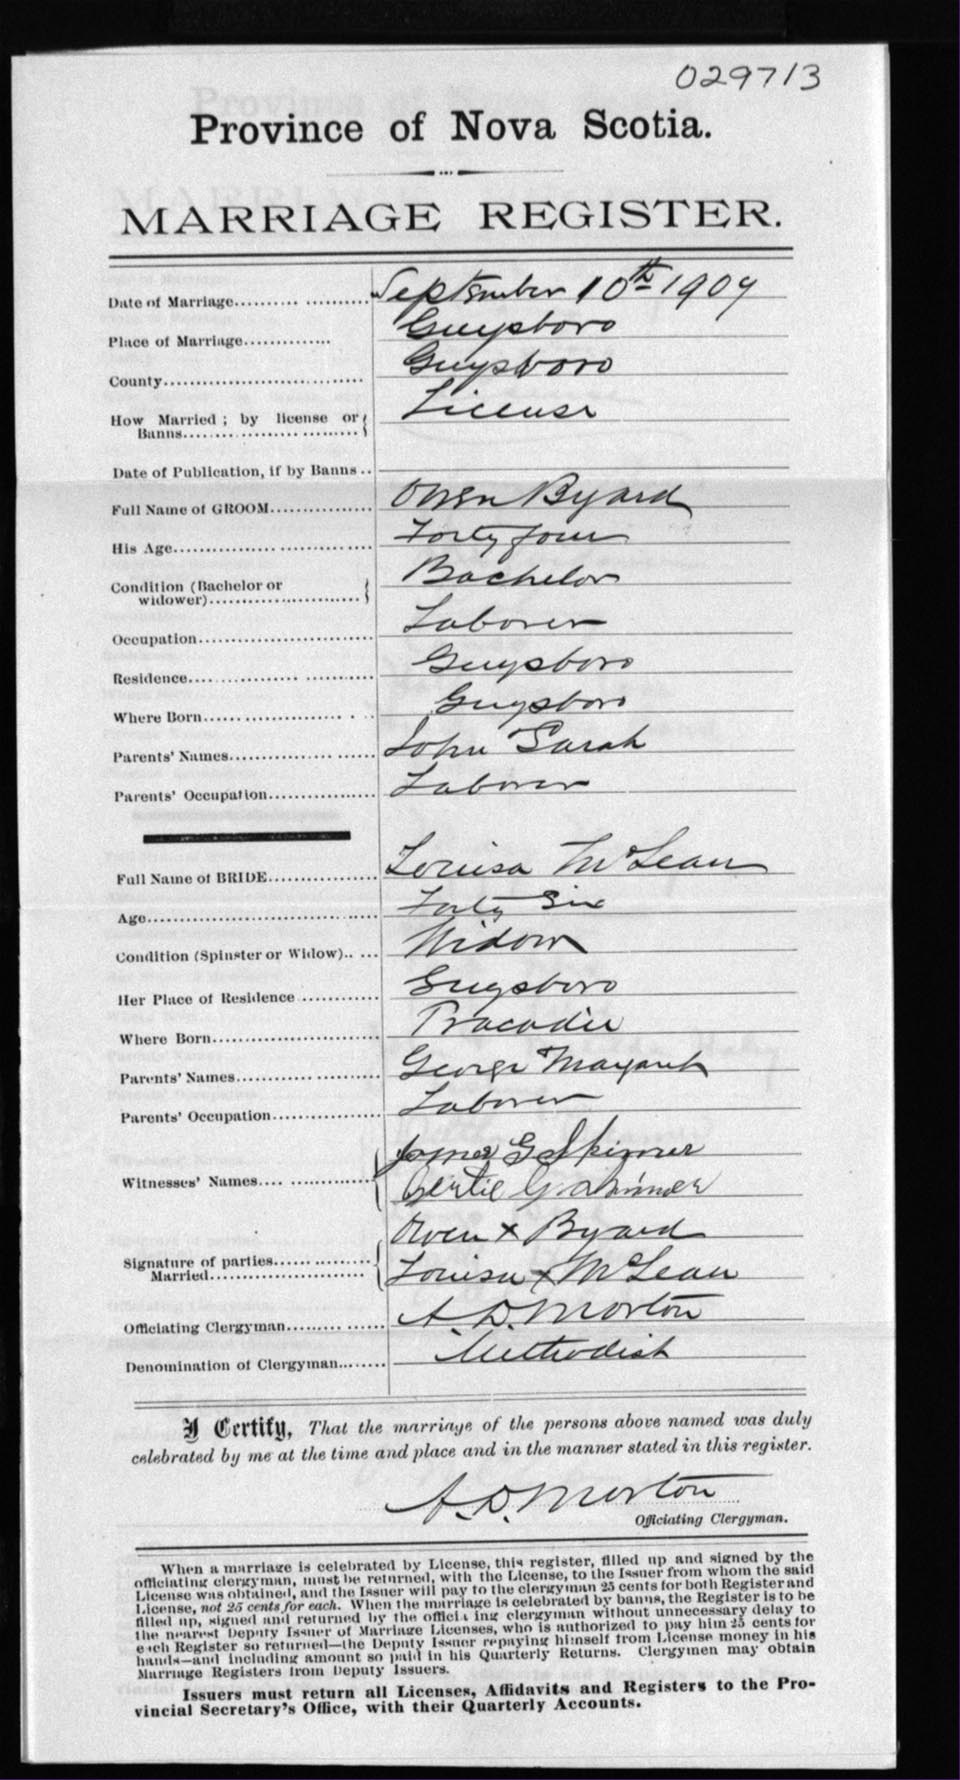 029713
Province of Nova Scotia.
MARRIAGE REGISTER.
Date of Marriage September 10th 1909
Place of Marriage Guysboro
County Guysboro
How Married ; by license or License
Banns
Date of Publication, if by Banns
Full Name of GROOM Owen Byard
His Age Forty four
Condition (Bachelor or Bachelor
widower)
Occupation Laborer
Residence Guysboro
Where Born Guysboro
Parents' Names John Sarah
Parents' Occupation Laborer
Full Name of BRIDE Louisa McLean
Age Forty Six
Condition (Spinster or Widow) Widow
Her Place of Residence Guysboro
Where Born Tracadie
Parents' Names George Margaret
Parents' Occupation Laborer
James G Skinner
Witnesses' Names Gertie G Skinner
Owen x Byard
Signature of parties
Married Louisa x McLean
Officiating Clergyman A. D. Morton
Denomination of Clergyman Methodist
I Certify, That the marriage of the persons above named was duly
celebrated by me at the time and place and in the manner stated in this register.
A. D. Morton
Officiating Clergyman.
When a marriage is celebrated by License, this register, filled up and signed by the
officiating clergyman, must be returned, with the License, to the Issuer from whom the said
License was obtained, and the Issuer will pay to the clergyman 25 cents for both Register and
License, not 25 cents for each. When the marriage is celebrated by banns, the Register is to be
filled up, signed and returned by the offici ing clergyman without unnecessary delay to
the nearest Deputy Issuer of Marriage Licenses, who is authorized to pay him 25 cents for
each Register so returned—the Deputy Issuer repaying himself from License money in his
hands—and including amount so paid in his Quarterly Returns. Clergymen may obtain
Marriage Registers from Deputy Issuers.
Issuers must return all Licenses, Affidavits and Registers to the Pro-
vincial Secretary's Office, with their Quarterly Accounts.